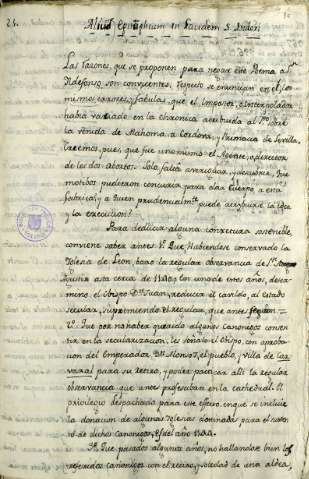 21.
Aliud Epitaphium in Laudem S. Isidori
Las razones, que se proponen para negar este Poema a Sn.
Ildefonso son convincentes, respecto se enuncian en el, los
mismos errores, y fabulas, que el Impostor, o Interpolador
havia vaciado en la Chronica atribuida al Sto. sobre
la venida de Mahoma a Cordova, y Primacia de Sevilla.
Creemos, pues, que fue uno mismo el Agente, o fabricador
de los dos abortos. Solo falta averiguar, y decidir, que
motivos pudieron concurrir para dar cuerpo a esta
fabrica, y a quien prudencialmte. puede atribuirse la idea
y la execucion?
Para deducir alguna conjetura sostenible,
conviene saber antes 1º. Que haviendose conservado la
Iglesia de Leon, bajo la regular observancia de Sn.
Agustin asta cerca de 1144, en uno de estos años, deter-
mino el Obispo Dn. Juan, reducir el cavildo, al estado
secular, suprimiendo el regular, que antes
2º. Que por no haver querido algunos canonigos consen-
tir en la secularizacion, les señalo el Obispo, con aproba-
cion del Emperador, Dn. Alonso 7, el pueblo, y villa de Car-
vaxal para su retiro, y poder practicar alli la regular
observancia que antes profesaban en la cathedral. El
privilegio despachado para este efecto, en que se incluie
la donacion de algunas Iglesias donadas para el susten-
to de dichos canonigos, es del año 1144.
3º. Que pasados algunos años, no hallandose bien los
referidos canonigos con el retiro, y soledad de una aldea,